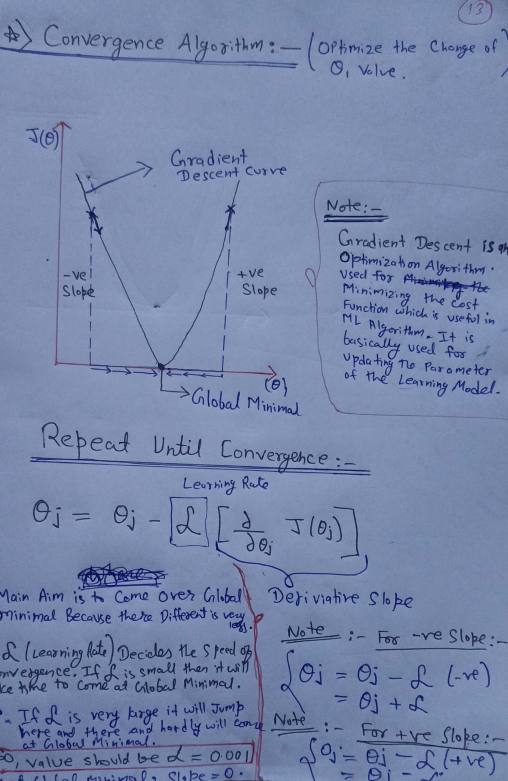 13
Convergence Algorithm :- (Optimize the Change of
θ, Value.
J(θ)
Gradient
Descent Curve
-ve
Slope
+ve
Slope
(θ)
Global Minimal
Note :-
Gradient Descent is an
Optimization Algorithm.
Used for
Minimizing the Cost
Function which is useful in
ML Algorithm. It is
basically used for
updating the Parameter
of the Learning Model.
Repeat Until Convergence :-
Learning Rate
θj = θj - α [∂/∂θj J(θj)]
Main Aim is to Come Over Global
minimal Because there Different is very
less.
Derivative Slope
α (Learning Rate) Decides the Speed of
nvergence. If α is small then it will
ke time to Come at Global Minimal.
If α is very large it will Jump
here and there and hardly will come
at Global Minimal.
so, value should be α = 0.001
Global minimal, Slope = 0.
Note :- For -ve Slope:-
θj = θj - α (-ve)
= θj + α
Note :- For +ve Slope:-
θj = θj - α (+ve)
= θj - α